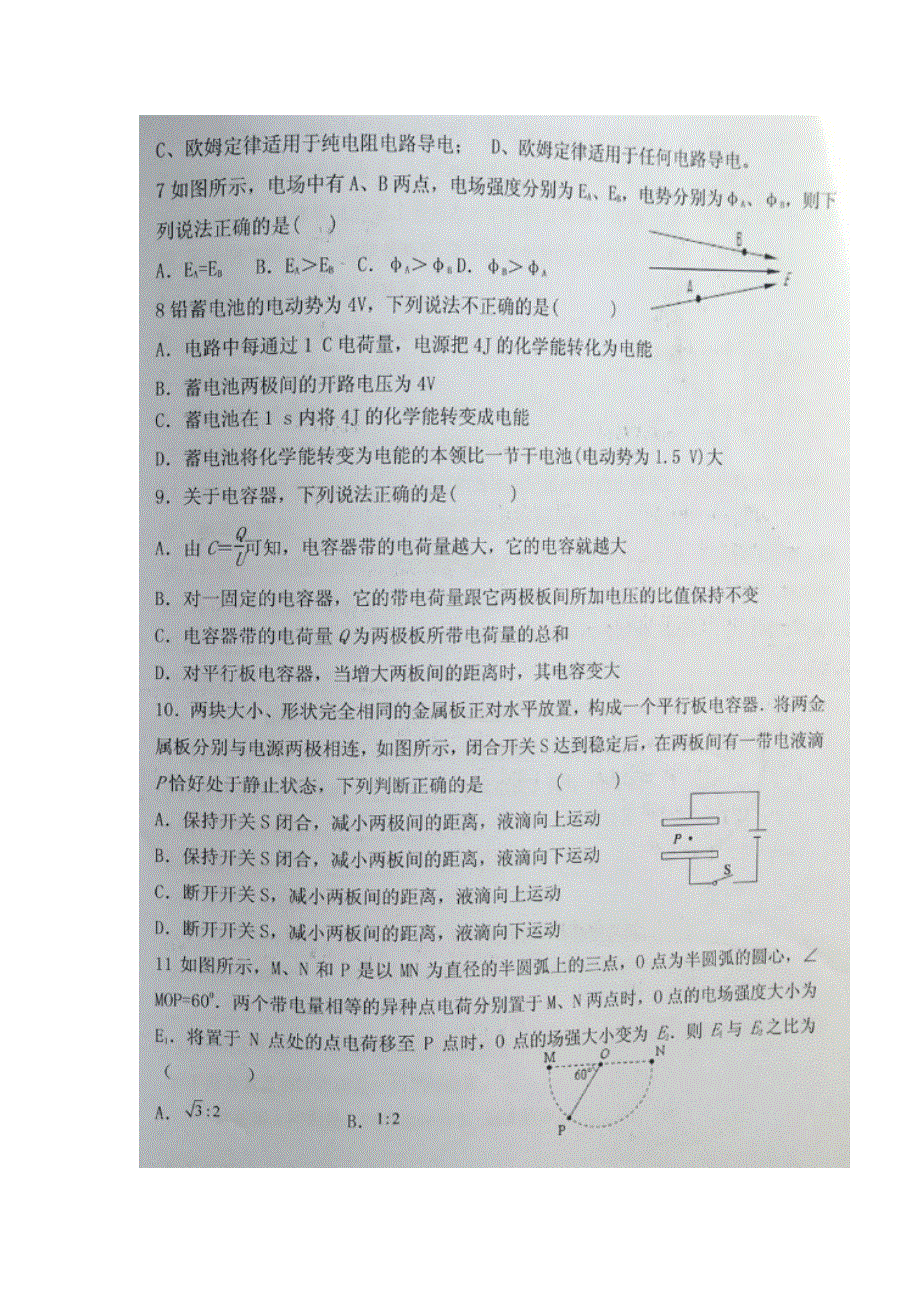 C、欧姆定律适用于纯电阻电路导电； D、欧姆定律适用于任何电路导电。
7 如图所示，电场中有 A、B 两点，电场强度分别为 EA、EB，电势分别为 φA、φB，则下
列说法正确的是( )
A．EA=EB B．EA＞EB C．φA＞φB D．φB＞φA
B
A
E
8 铅蓄电池的电动势为 4V，下列说法不正确的是( )
A．电路中每通过 1 C 电荷量，电源把 4J 的化学能转化为电能
B．蓄电池两极间的开路电压为 4V
C．蓄电池在 1 s 内将 4J 的化学能转变成电能
D．蓄电池将化学能转变为电能的本领比一节干电池(电动势为 1.5 V)大
9．关于电容器，下列说法正确的是( )
A．由 C=Q/U可知，电容器带的电荷量越大，它的电容就越大
B．对一固定的电容器，它的带电荷量跟它两极板间所加电压的比值保持不变
C．电容器带的电荷量 Q 为两极板所带电荷量的总和
D．对平行板电容器，当增大两板间的距离时，其电容变大
10．两块大小、形状完全相同的金属板正对水平放置，构成一个平行板电容器．将两金
属板分别与电源两极相连，如图所示，闭合开关 S 达到稳定后，在两板间有一带电液滴
P 恰好处于静止状态，下列判断正确的是 ( )
A．保持开关 S 闭合，减小两极间的距离，液滴向上运动
B．保持开关 S 闭合，减小两板间的距离，液滴向下运动
C．断开开关 S，减小两板间的距离，液滴向上运动
D．断开开关 S，减小两板间的距离，液滴向下运动
P
S
11 如图所示，M、N 和 P 是以 MN 为直径的半圆弧上的三点，O 点为半圆弧的圆心，∠
MOP=60⁰．两个带电量相等的异种点电荷分别置于 M、N 两点时，O 点的电场强度大小为
E₁．将置于 N 点处的点电荷移至 P 点时，O 点的场强大小变为 E₂．则 E₁与 E₂之比为
( )
M O N
60°
P
A．√3:2 B．1:2